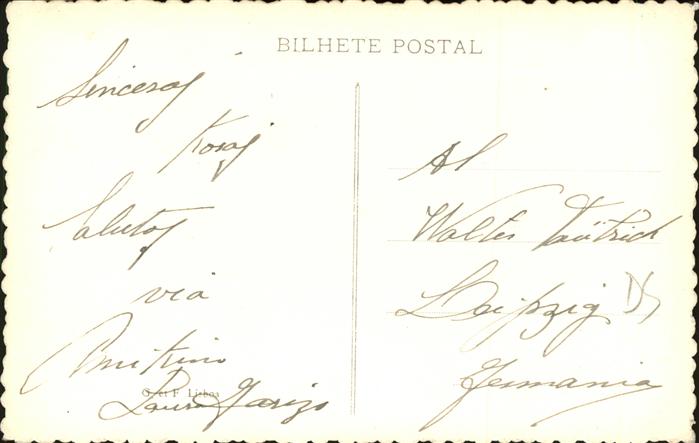 BILHETE POSTAL
Sinceraj
Koraj
Salutoj
via
Amikino
Laura
G. et F. Lisboa
Al
Walter
Leipzig
Germania